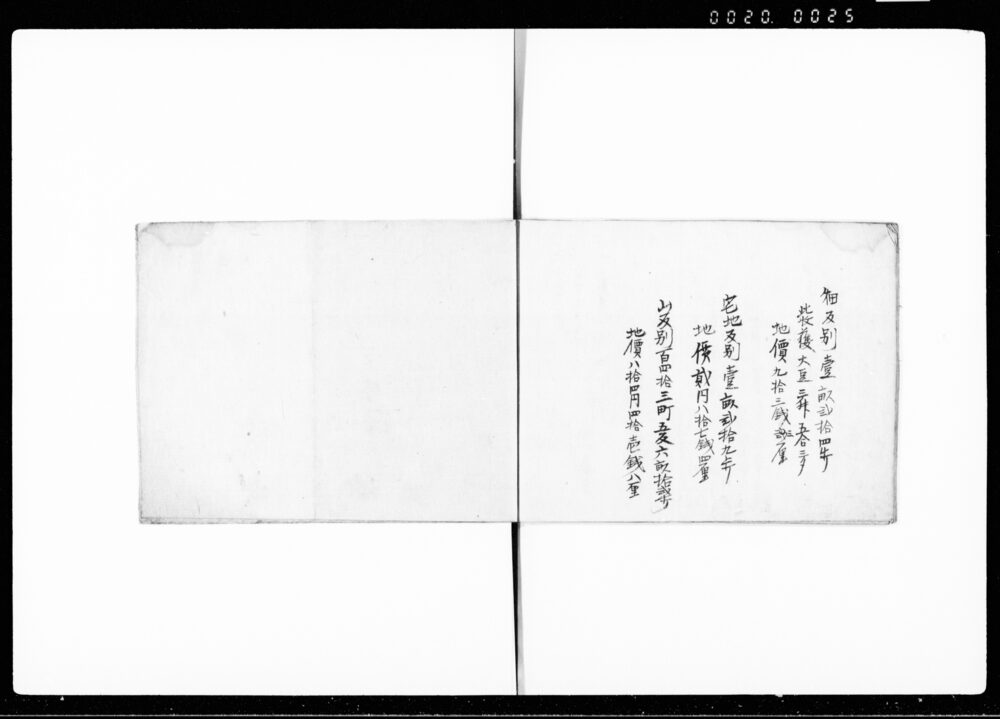 0020. 0025
畑反別壹畝弐拾四歩
此収獲大豆三斗五合三夕
地價九拾三銭弐厘
宅地反別壹畝弐拾九歩
地價貮円八拾七銭四厘
山反別百四拾三町五反六畝拾弐歩
地價八拾四円四拾壱銭八厘